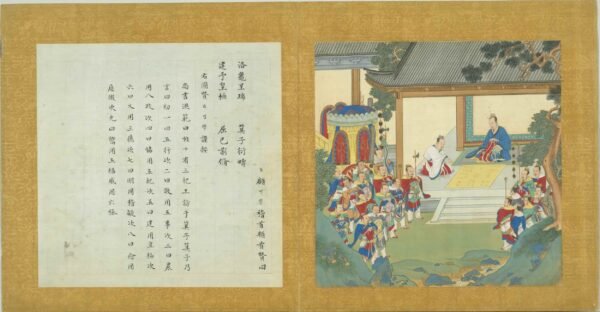 稽首頓首贊曰
洛龜呈瑞　箕子衍疇
建予皇極　屈己
右圖贊　謹按
尚書洪範曰惟十有三祀王訪于箕子箕子乃
言曰初一曰五行次二曰敬用五事次三曰農
用八政次四曰協用五紀次五曰建用皇極次
六曰乂用三德次七曰明用稽疑次八曰念用
庶徵次九曰嚮用五福威用六極